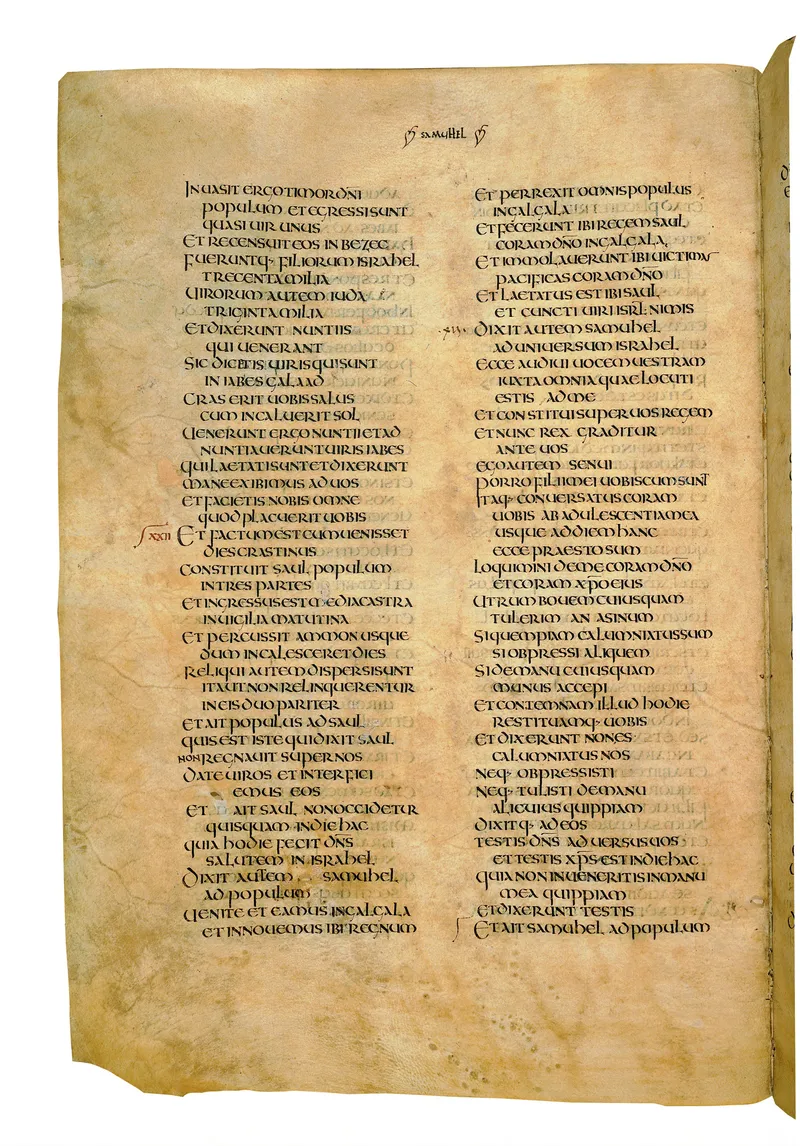 SAMUHEL
INUASIT ERGO TIMOR DÑI
POPULUM ET EGRESSI SUNT
QUASI UIR UNUS
ET RECENSUIT EOS IN BEZEC
FUERUNTQ· FILIORUM ISRAHEL
TRECENTA MILIA
UIRORUM AUTEM IUDA
TRIGINTA MILIA
ET DIXERUNT NUNTIIS
QUI UENERANT
SIC DICETIS UIRIS QUI SUNT
IN IABES GALAAD
CRAS ERIT UOBIS SALUS
CUM INCALUERIT SOL
UENERUNT ERGO NUNTII ET AD
NUNTIAUERUNT UIRIS IABES
QUI LAETATI SUNT ET DIXERUNT
MANE EXIBIMUS AD UOS
ET FACIETIS NOBIS OMNE
QUOD PLACUERIT UOBIS
XXII ET FACTUM EST CUM UENISSET
DIES CRASTINUS
CONSTITUIT SAUL POPULUM
IN TRES PARTES
ET INGRESSUS EST MEDIA CASTRA
IN UIGILIA MATUTINA
ET PERCUSSIT AMMON USQUE
DUM INCALESCERET DIES
RELIQUI AUTEM DISPERSI SUNT
ITA UT NON RELINQUERENTUR
IN EIS DUO PARITER
ET AIT POPULUS AD SAUL
QUIS EST ISTE QUI DIXIT SAUL
NON REGNAUIT SUPER NOS
DATE UIROS ET INTERFICI
EMUS EOS
ET AIT SAUL NON OCCIDETUR
QUISQUAM IN DIE HAC
QUIA HODIE FECIT DÑS
SALUTEM IN ISRAHEL
DIXIT AUTEM SAMUHEL
AD POPULUM
UENITE ET EAMUS IN GALGALA
ET INNOUEMUS IBI REGNUM
ET PERREXIT OMNIS POPULUS
IN GALGALA
ET FECERUNT IBI REGEM SAUL
CORAM DÑO IN GALGALA
ET IMMOLAUERUNT IBI UICTIMAS
PACIFICAS CORAM DÑO
ET LAETATUS EST IBI SAUL
ET CUNCTI UIRI ISRL NIMIS
DIXIT AUTEM SAMUHEL
AD UNIUERSUM ISRAHEL
ECCE AUDIUI UOCEM UESTRAM
IUXTA OMNIA QUAE LOCUTI
ESTIS AD ME
ET CONSTITUI SUPER UOS REGEM
ET NUNC REX GRADITUR
ANTE UOS
EGO AUTEM SENUI
PORRO FILII MEI UOBISCUM SUNT
ITAQ· CONUERSATUS CORAM
UOBIS AB ADULESCENTIA MEA
USQUE AD DIEM HANC
ECCE PRAESTO SUM
LOQUIMINI DE ME CORAM DÑO
ET CORAM XPO EIUS
UTRUM BOUEM CUIUSQUAM
TULERIM AN ASINUM
SI QUEMPIAM CALUMNIATUS SUM
SI OBPRESSI ALIQUEM
SI DE MANU CUIUSQUAM
MUNUS ACCEPI
ET CONTEMNAM ILLUD HODIE
RESTITUAMQ· UOBIS
ET DIXERUNT NON ES
CALUMNIATUS NOS
NEQ· OBPRESSISTI
NEQ· TULISTI DE MANU
ALICUIUS QUIPPIAM
DIXITQ· AD EOS
TESTIS DÑS ADUERSUS UOS
ET TESTIS XPS EST IN DIE HAC
QUIA NON INUENERITIS IN MANU
MEA QUIPPIAM
ET DIXERUNT TESTIS
ET AIT SAMUHEL AD POPULUM